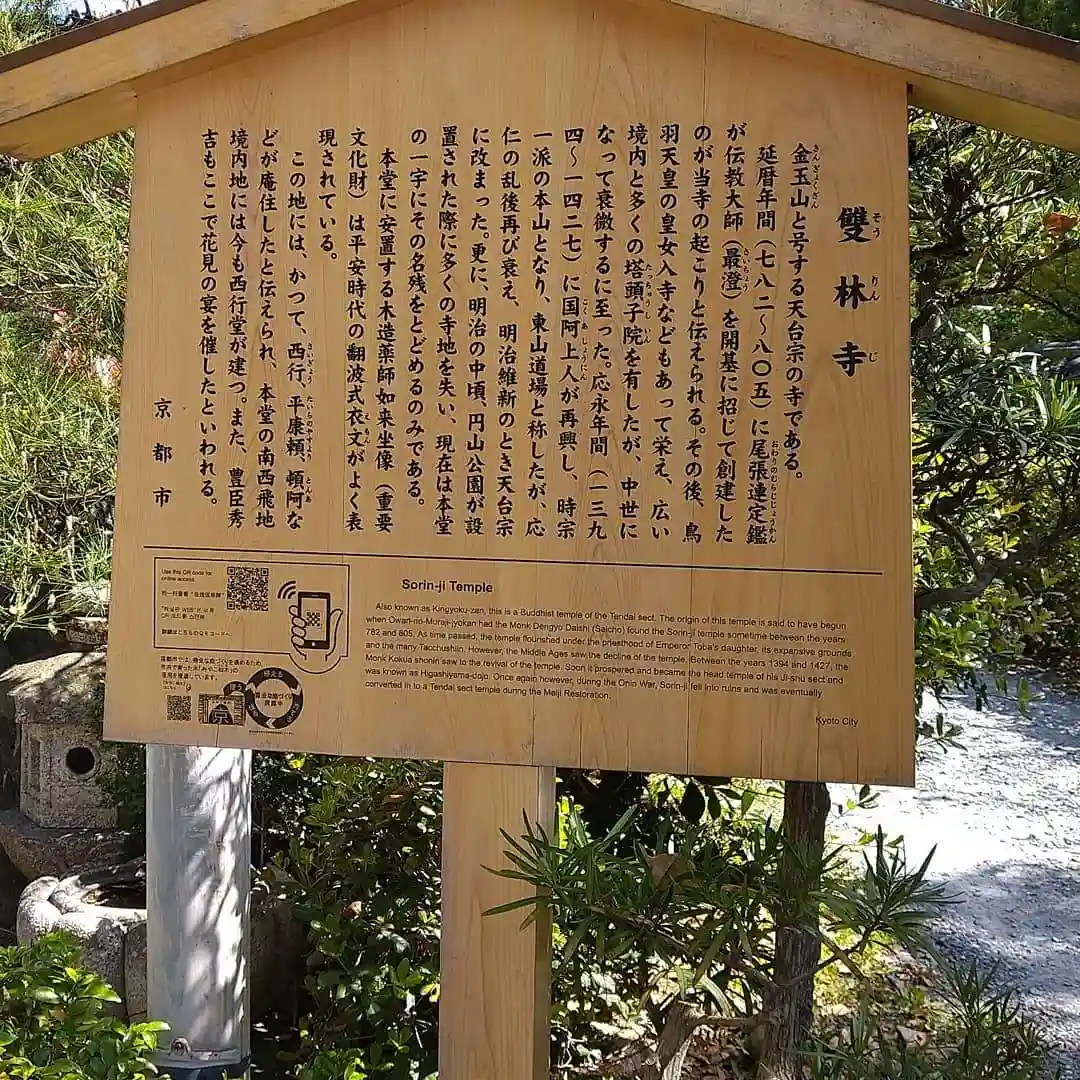 雙林寺
そう りん じ
金玉山と号する天台宗の寺である。
きんぎょくさん
延暦年間(七八二〜八〇五)に尾張連定鑑
おわりのむらじじょうかん
が伝教大師(最澄)を開基に招じて創建した
さいちょう
のが当寺の起こりと伝えられる。その後、鳥
羽天皇の皇女入寺などもあって栄え、広い
境内と多くの塔頭子院を有したが、中世に
たっちゅうしいん
なって衰微するに至った。応永年間(一三九
四〜一四二七)に国阿上人が再興し、時宗
こくあしょうにん
一派の本山となり、東山道場と称したが、応
仁の乱後再び衰え、明治維新のとき天台宗
に改まった。更に、明治の中頃、円山公園が設
置された際に多くの寺地を失い、現在は本堂
の一宇にその名残をとどめるのみである。
本堂に安置する木造薬師如来坐像(重要
文化財)は平安時代の翻波式衣文がよく表
えもん
現されている。
この地には、かつて、西行、平康頼、頓阿な
さいぎょう たいらのやすより とんあ
どが庵住したと伝えられ、本堂の南西飛地
境内地には今も西行堂が建つ。また、豊臣秀
吉もここで花見の宴を催したといわれる。
京都市
Use this QR code for
online access.
詳細はこちらのQRコードへ
Sorin-ji Temple
Also known as Kingyoku-zan, this is a Buddhist temple of the Tendai sect. The origin of this temple is said to have begun
when Owari-no-Muraji-jyokan had the Monk Dengyo Daishi (Saicho) found the Sorin-ji temple sometime between the years
782 and 805. As time passed, the temple flourished under the priesthood of Emperor Toba's daughter, its expansive grounds
and the many Tacchushiin. However, the Middle Ages saw the decline of the temple. Between the years 1394 and 1427, the
Monk Kokua shonin saw to the revival of the temple. Soon it prospered and became the head temple of his Ji-shu sect and
was known as Higashiyama-dojo. Once again however, during the Onin War, Sorin-ji fell into ruins and was eventually
converted in to a Tendai sect temple during the Meiji Restoration.
Kyoto City